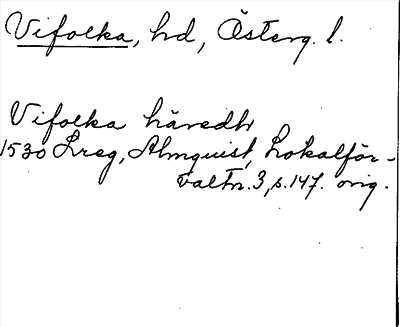 Vifolka, hd, Österg. l.
Vifolka häredh
1530 Lreg, Almquist, Lokalför-
valtn. 3, s. 147. orig.